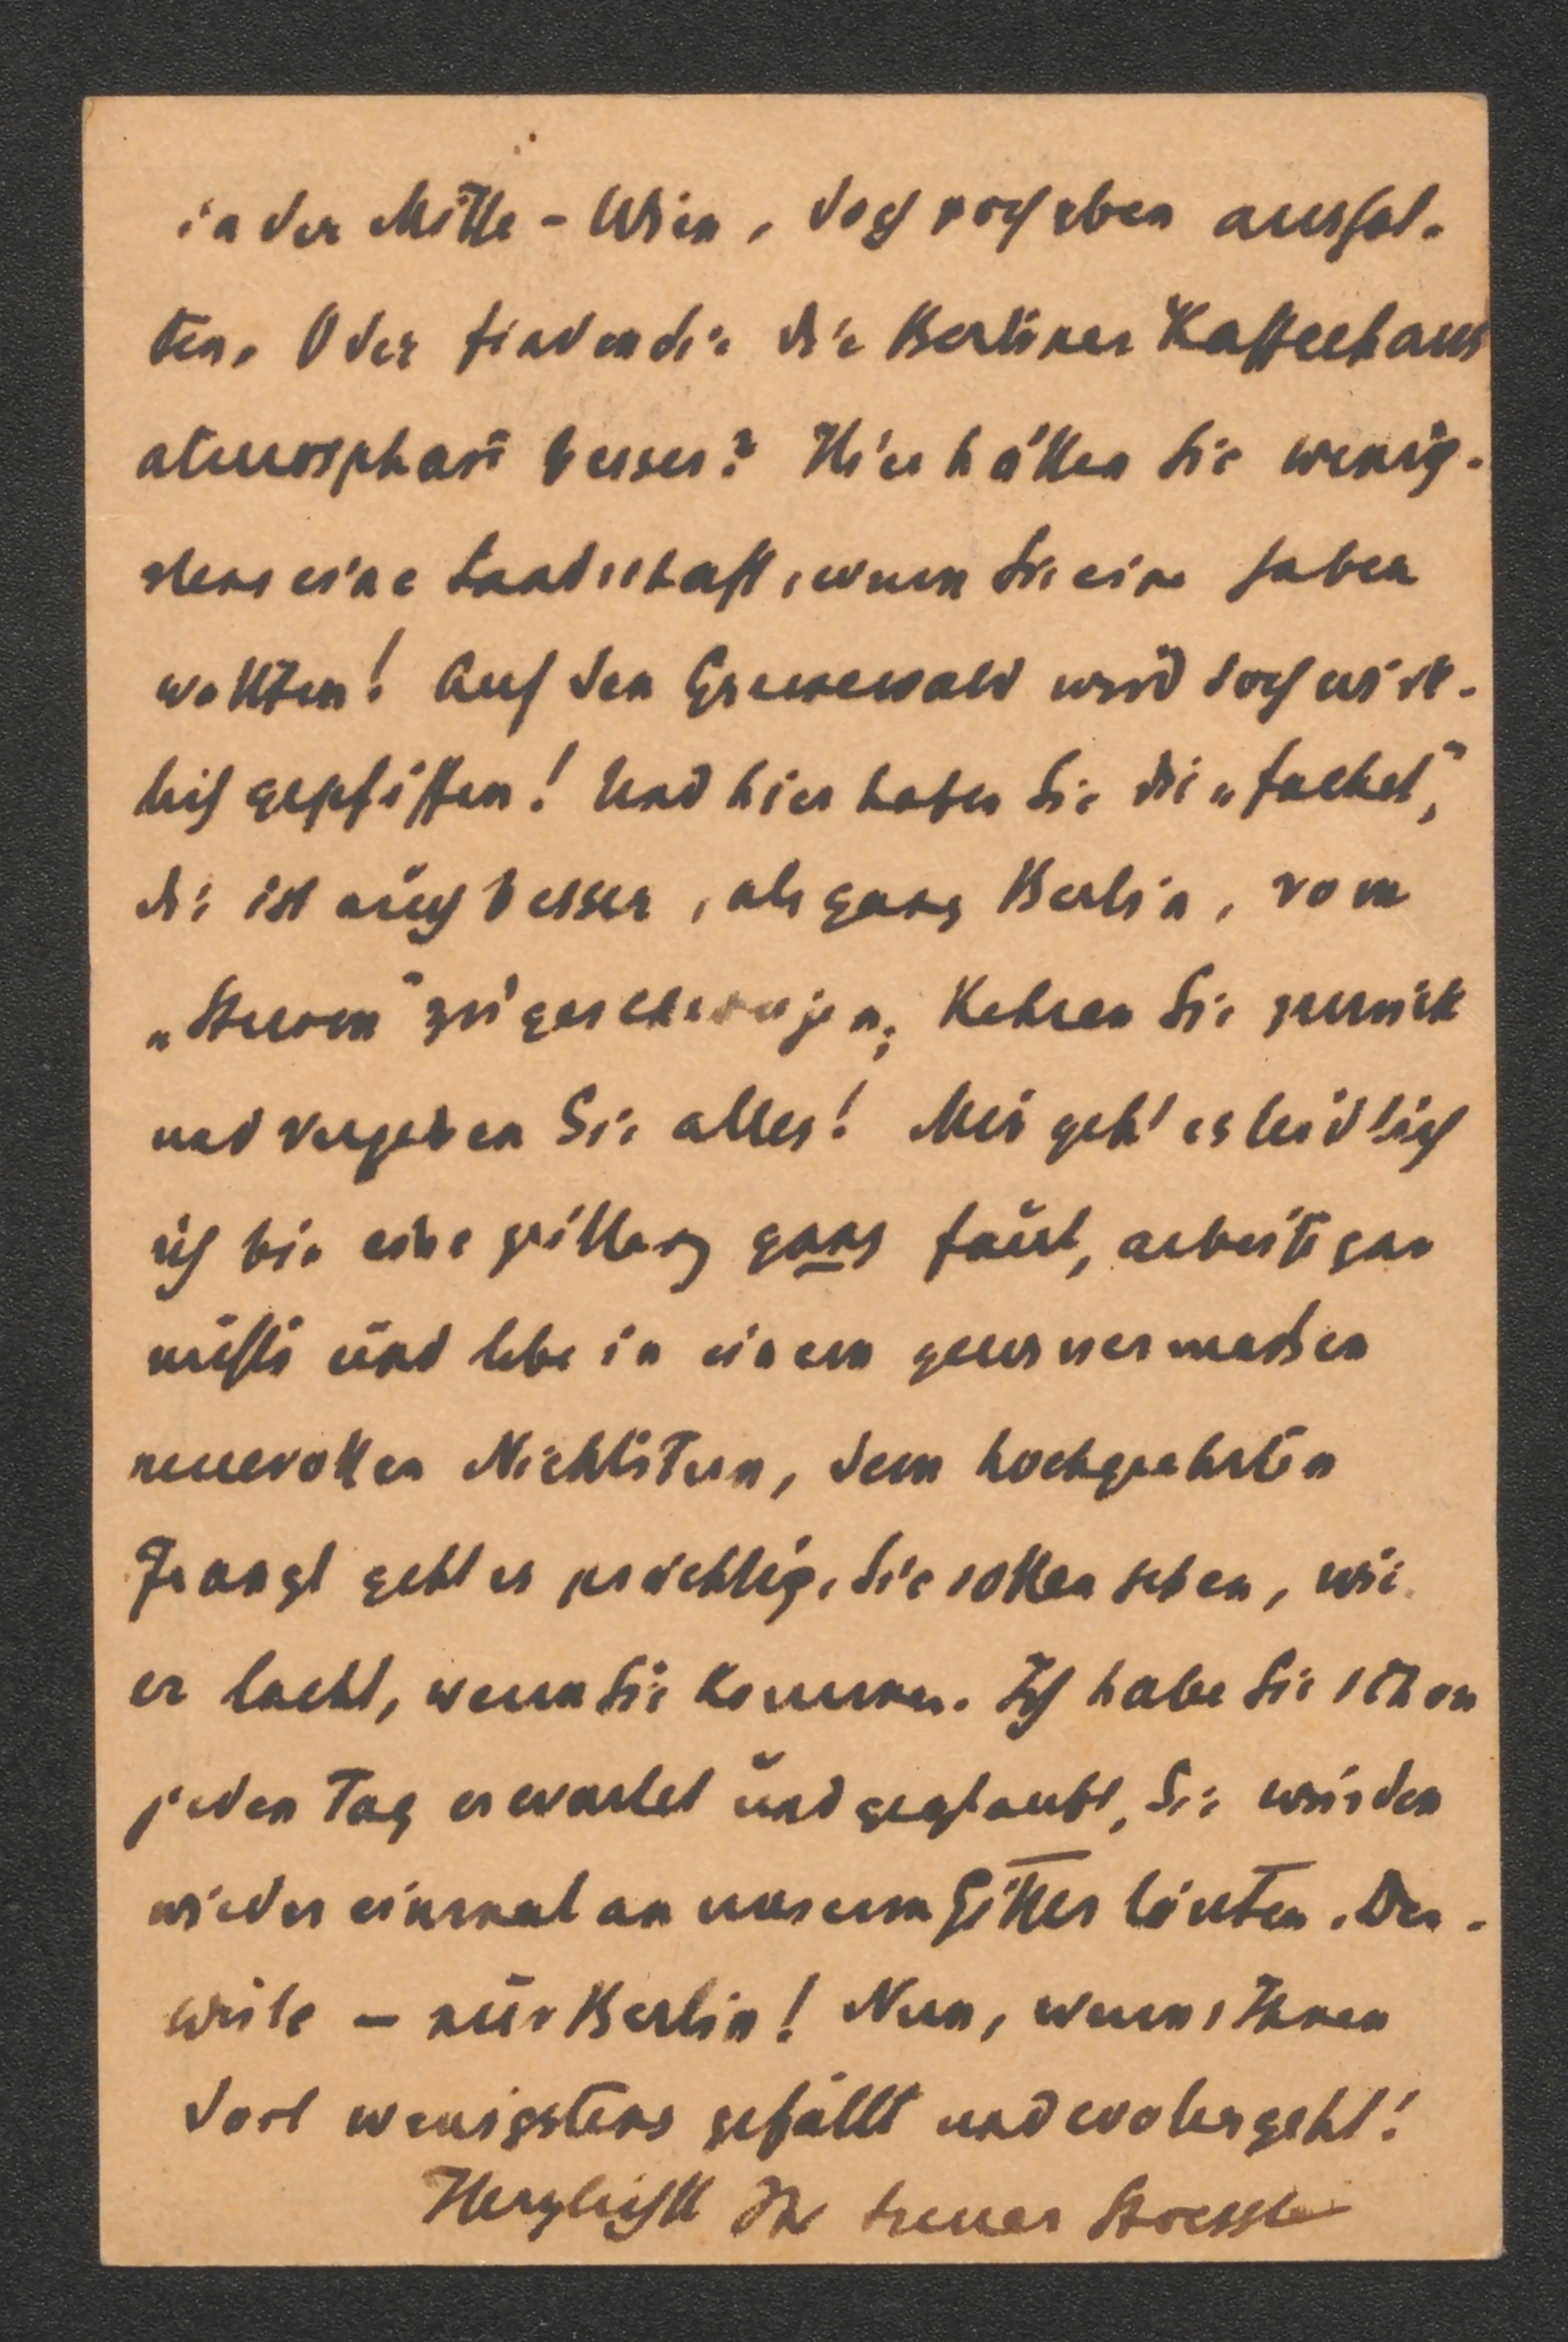 in der Mitte – Wien, doch noch eben aushal-
ten. Oder finden Sie die Berliner Kaffeehaus
atmosphäre besser? Hier hätten Sie wenig-
stens eine Landschaft, wenn Sie eine haben
wollten! Auf den Grunewald wird doch wirk-
lich gepfiffen! Und hier haben Sie die „Fackel“,
die ist auch besser, als ganz Berlin, vom
„Sturm“ zu geschweigen; Kehren Sie zurück
und vergeben Sie alles! Mir geht es leidlich
ich bin eine zeitlang ganz faul, arbeite gar
nichts und lebe in einem gewissermaßen
reuevollen Nichtstun, dem hochgeehrten
Franzl geht es prächtig, Sie sollen sehen, wie
er lacht, wenn Sie kommen. Ich habe Sie schon
jeden Tag erwartet und geglaubt, Sie würden
wieder einmal an unserem Gitter läuten. Der-
weile – nur Berlin! Nun, wenns Ihnen
dort wenigstens gefällt und wohlergeht!
Herzlichst Ihr treuer Stoessl